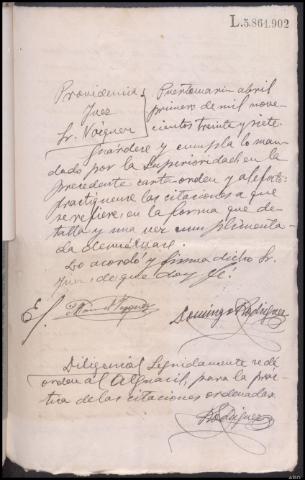 L.5.864.902
Providencia
Juez
Sr. Vázquez
Puertomarin abril
primero de mil nove-
cientos treinta y siete.
Guardese y cumpla lo man-
dado por la Superioridad en la
precedente carta-orden y al efecto
practiquense las citaciones a que
se refiere, en la forma que de-
talla y una vez cumplimenta-
da devuélvase.
Lo acordó y firma dicho Sr.
Juez de que doy fé.
E/.
Manuel Vázquez
Domingo Rodriguez
Diligencia/ Seguidamente se dé
orden al Alguacil, para la prác-
tica de las citaciones ordenadas.
Rodriguez